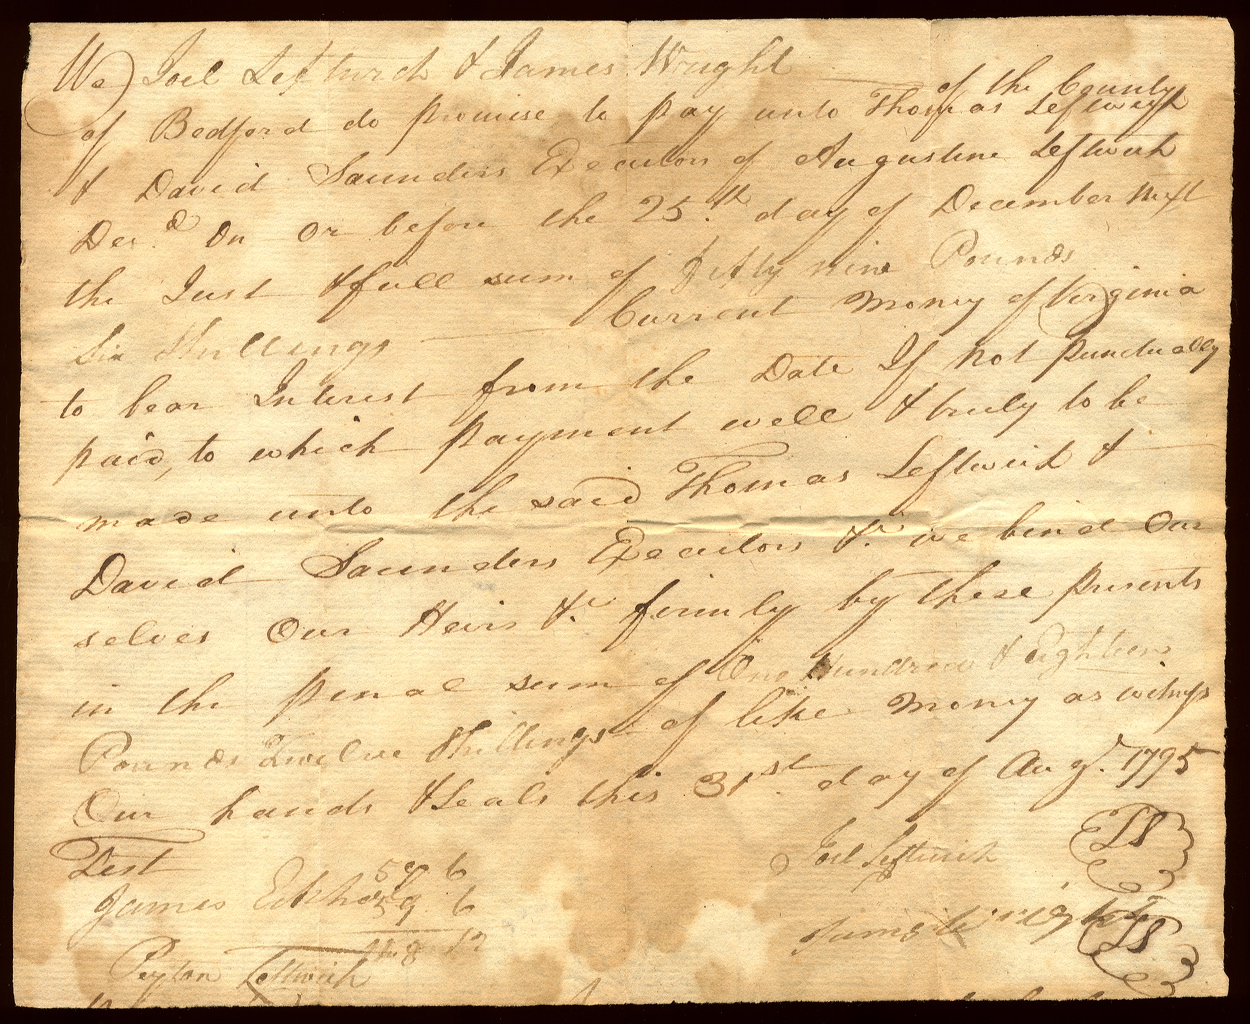 We Joel Leftwich & James Wright of the County
of Bedford do promise to pay unto Thomas Leftwich
& David Saunders Executors of Augustine Leftwich
Dec.d On or before the 25th day of December next
the Just & full sum of fifty nine Pounds
Six Shillings Current Money of Virginia
to bear Interest from the Date If not punctually
paid, to which payment well & truly to be
made unto the said Thomas Leftwich &
David Saunders Executors &c we bind Our
selves Our Heirs &c firmly by these presents
in the penal sum of One Hundred & Eighteen
Pounds Twelve Shillings of like Money as witness
Our hands & Seals this 31st day of Augt. 1795
Test
Joel Leftwich LS
James 59 6
59 6
James Wright LS
118 12
Peyton Leftwich